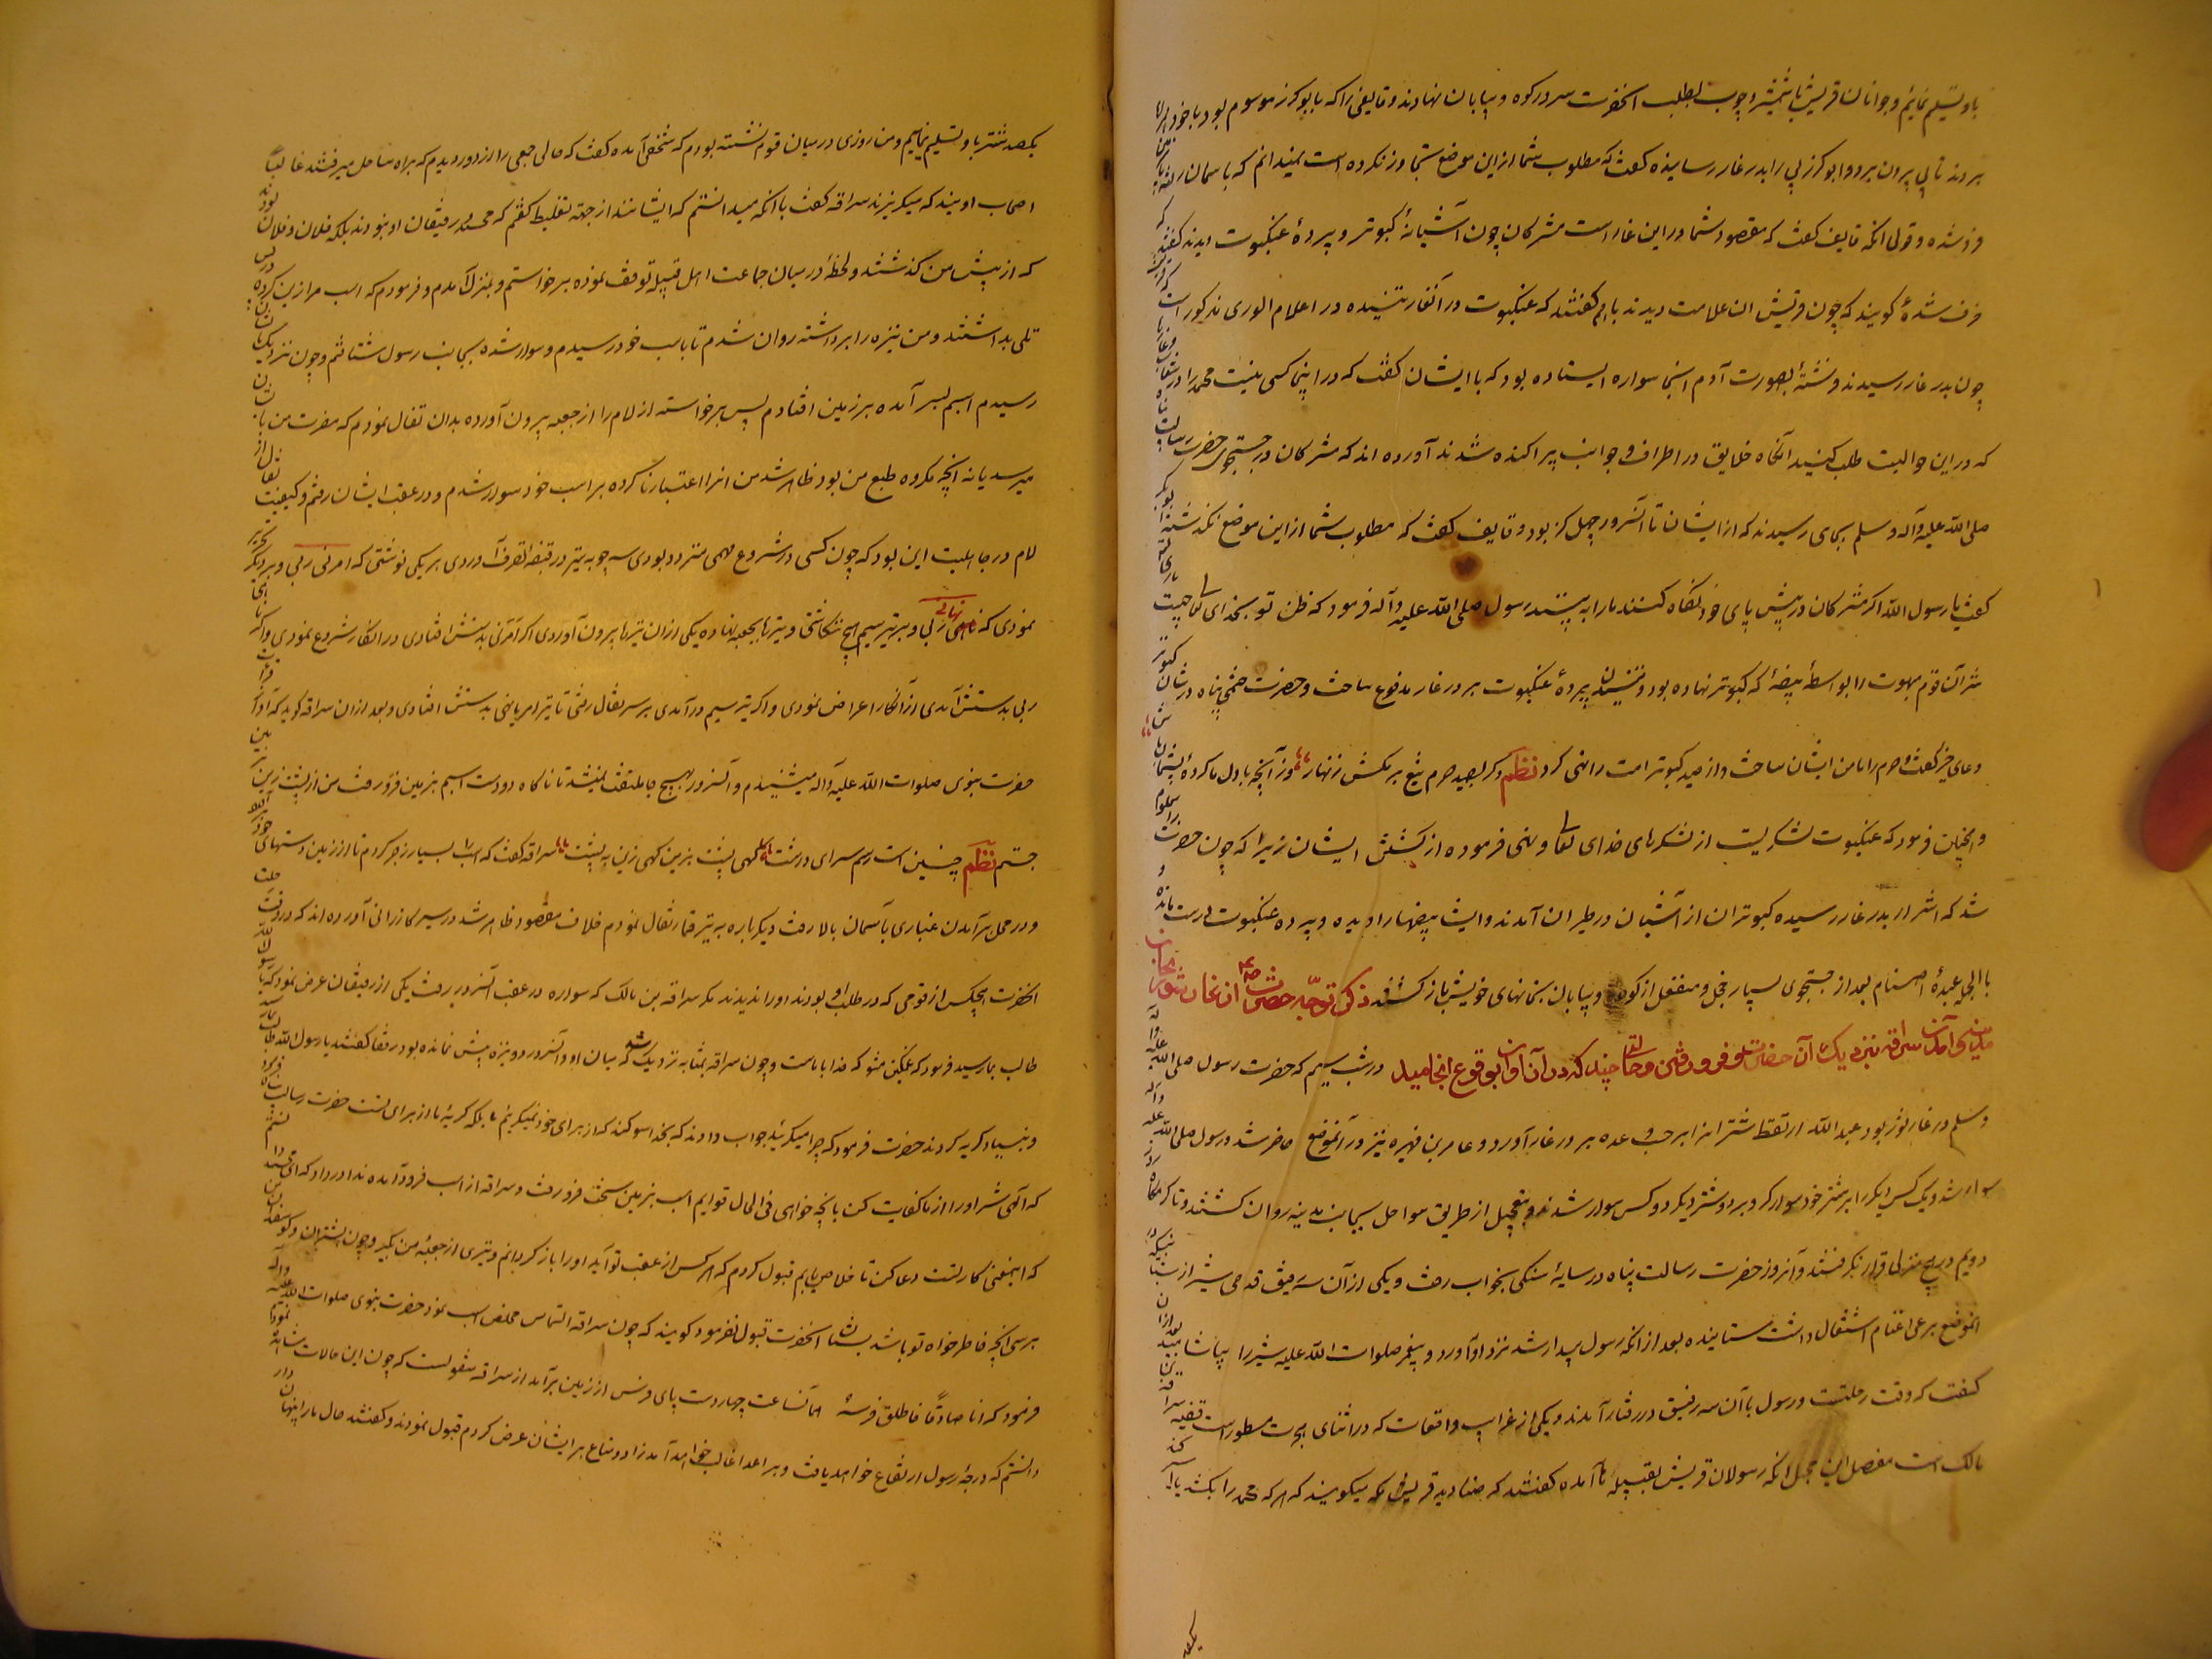 باو تسلیم نمائیم و جوانان قریش با شمشیر و چوب بطلب آنحضرت سر در کوه و بیابان نهادند و قایفی را که بابو کرز موسوم بود با خود
بردند تا پی بیرون برد و ابو کرز پی را بدر غار رسانیده گفت که مطلوب شما ازین موضع تجاوز نکرده است نمیدانم که باسمان رفته یا بزمین
فرو شده و قولی آنکه قایف گفت که مقصود شما درین غار است مشرکان چون آشیانهٔ کبوتر و پردهٔ عنکبوت دیدند گفتند که
گویند که چون قریش آن علامت دیدند باهم گفتند که عنکبوت در آنغار تنیده در اعلام الوری مذکور است که
چون بدر غار رسیدند فرشتهٔ بصورت آدم اسپی سواره ایستاده بود که با ایشان گفت که در اینجا کسی نیست محمد را در
که درین حوالیست طلب کنید آنگاه خلایق در اطراف و جوانب پراکنده شدند آورده اند که مشرکان در جستجوی حضرت رسالت پناه
صلی الله علیه و آله و سلم بجای رسیدند که از ایشان تا آنسرور چهل گز بود و قایف گفت که مطلوب شما ازین موضع نگذشته ابوبکر
گفت یا رسول الله اگر مشرکان در پیش پای خود نگاه کنند ما را به بینند رسول صلی الله علیه و آله فرمود که ظن تو بخدای تعالی چیست
شر آن قوم مبهوت را بواسطهٔ بیضهٔ که کبوتر نهاده بود و تنیدن پردهٔ عنکبوت بر در غار مدفوع ساخت و حضرت ختمی پناه در شان کبوتر
دعای خیر گفت و حرم را مامن ایشان ساخت و از صید کبوتر امت را نهی کرد نظم دگر بصید حرم تیغ بر مکش زنهار وز آنچه با دل ما کردهٔ پشیمان باش
و همچنان فرمود که عنکبوت لشکریست از لشکرهای خدای تعالی و نهی فرموده از کشتن ایشان زیرا که چون حضرت را معلوم
شد که اشرار بدر غار رسیده کبوتران از آشیان در طیران آمدند و ایشان بیضها را دیده و پرده عنکبوت درست مانده و
بالجمله عبدهٔ اصنام بعد از جستجوی بسیار خجل و منفعل از کوه و بیابان بخانهای خویش باز گشتند ذکر توجه حضرت از غار ثور بجانب
مدینه و آمدن سراقه بنزدیک آن حضرت و فرو رفتن و حالات چند که در آن اوان بوقوع انجامید در شب سیم که حضرت رسول صلی الله علیه و آله
و سلم در غار ثور بود عبدالله ارقط شترانرا بر حسب وعده بر در غار آورد و عامر بن فهیره نیز در آنموضع حاضر شد و رسول صلی الله علیه و آله
سوار شد و یک کس دیگر را بر شتر خود سوار کرد و بر دو شتر دیگر دو کس سوار شدند و بتعجیل از طریق سواحل بجانب مدینه روان گشتند و تا گرمگاه روز
دویم در هیچ منزلی قرار نگرفتند و آنروز حضرت رسالت پناه در سایهٔ سنگی بخواب رفت و یکی از آن سه رفیق قدحی شیر از شبانیکه در
آنموضع برعی اغنام اشتغال داشت ستانیده بعد از آنکه رسول بیدار شد نزد او آورد و پیغمبر صلوات الله علیه شیر را بیاشامید بعد از آن
گفت که وقت رحلتست و رسول با آن سه رفیق در رفتار آمدند و یکی از غرایب واقعات که در اثنای هجرت مسطور است قضیه سراقه بن
مالک است مفصل این مجمل آنکه رسولان قریش بقبیلهٔ ما آمده گفتند که صنادید قریش مکه میگویند که هر که محمد را بکشد یا اسیر کند
یکصد
یکصد شتر باو تسلیم نمائیم و من روزی در میان قوم نشسته بودم که شخصی آمده گفت که حالی جمعی را از دور دیدم که براه ساحل میرفتند غالباً
اصحاب اویند که میگریزند سراقه گفت با آنکه میدانستم که ایشانند از جهة تغلیط گفتم که محمد و رفیقان او نبودند بلکه فلان و فلان بودند
که از پیش من گذشتند و لحظهٔ در میان جماعت اهل قبیله توقف نموده برخواستم و بمنزل آمدم و فرمودم که اسب مرا زین کرده در پس
تلی بداشتند و من نیزه را برداشته روان شدم تا باسب خود رسیدم و سوار شده بجانب رسول شتافتم و چون نزدیک بایشان
رسیدم اسبم بسر آمده بر زمین افتادم پس برخواسته ازلام را از جعبه بیرون آورده بدان تفال نمودم که مضرت من بایشان
میرسد یا نه آنچه مکروه طبع من بود ظاهر شد من آنرا اعتبار ناکرده بر اسب خود سوار شدم و در عقب ایشان رفتم و کیفیت تفال از
لام در جاهلیت این بود که چون کسی در شروع مهمی متردد بودی سه چوبه تیر در قبضه تصرف آوردی بر یکی نوشتی که امرنی ربی و بر دیگر تحریر
نمودی که نهانی ربی و بر تیر سیم هیچ ننگاشتی و تیرها بجعبه نهاده یکی از آن تیرها بیرون آوردی اگر امرنی بدستش افتادی در انکار شروع نمودی و اگر نهانی
ربی بدستش آمدی از آنکار اعراض نمودی و اگر تیر سیم در آمدی بر سر تفال رفتی تا تیر امر یا نهی بدستش افتادی و بعد از آن سراقه گوید که آواز قرات
حضرت نبوی صلوات الله علیه و آله میشنیدم و آنسرور بهیچ جا ملتفت نمیشد تا ناگاه دو دست اسبم بزمین فرو رفت من از پشت زین بزمین
جستم نظم چنین است رسم سرای درشت گهی پشت بزین گهی زین به پشت سراقه گفت که اسب را بسیار زجر کردم تا از زمین دستهای خود
و در محل برآمدن غباری بآسمان بالا رفت دیگر باره به تیر قمار تفال نمودم خلاف مقصود ظاهر شد در سیر کازرانی آورده اند که در وقت رحلت
آنحضرت هیچکس از قومی که در طلب او بودند او را ندیدند مگر سراقه بن مالک که سواره در عقب آنسرور برفت یکی از رفیقان عرض نمود که یا رسول الله
طالب بما رسید فرمود که غمگین مشو که خدا با ماست و چون سراقه بمثابه نزدیک شد که میان او و آنسرور دو نیزه بیش نمانده بود رفقا گفتند یا رسول الله طالب بما رسید
و بنیاد گریه کردند حضرت فرمود که چرا میگریید جواب دادند که بخدا سوگند که از برای خود نمیگرییم بلکه گریهٔ ما از برای تست حضرت رسالت پناه فرمود
که الهی شر او را از ما کفایت کن بآنچه خواهی فی الحال قوایم اسب بزمین سخت فرو رفت و سراقه از اسب فرود آمده ندا در داد که ای محمد دانستم
که اینمعنی کار تست دعا کن تا خلاص یابم قبول کردم که هر کس از عقب تو آید او را باز گردانم و تیری از جعبهٔ من بگیر و چون بشتران و گوسفندان من
برسی آنچه خاطر خواه تو باشد بستان آنحضرت قبول نفرمود گویند که چون سراقه التماس مخلص اسب نمود حضرت نبوی صلوات الله علیه و آله
فرمود که ان کان صادقا فاطلق فرسه آنساعت چهار دست پای فرس از زمین برآمد از سراقه منقولست که چون این حالات مشاهده نمودم
دانستم که درجهٔ رسول ارتفاع خواهد یافت و بر اعدا غالب خواهد آمد زاد و متاع بر ایشان عرض کردم قبول ننمودند و گفتند حال ما را پنهان دار